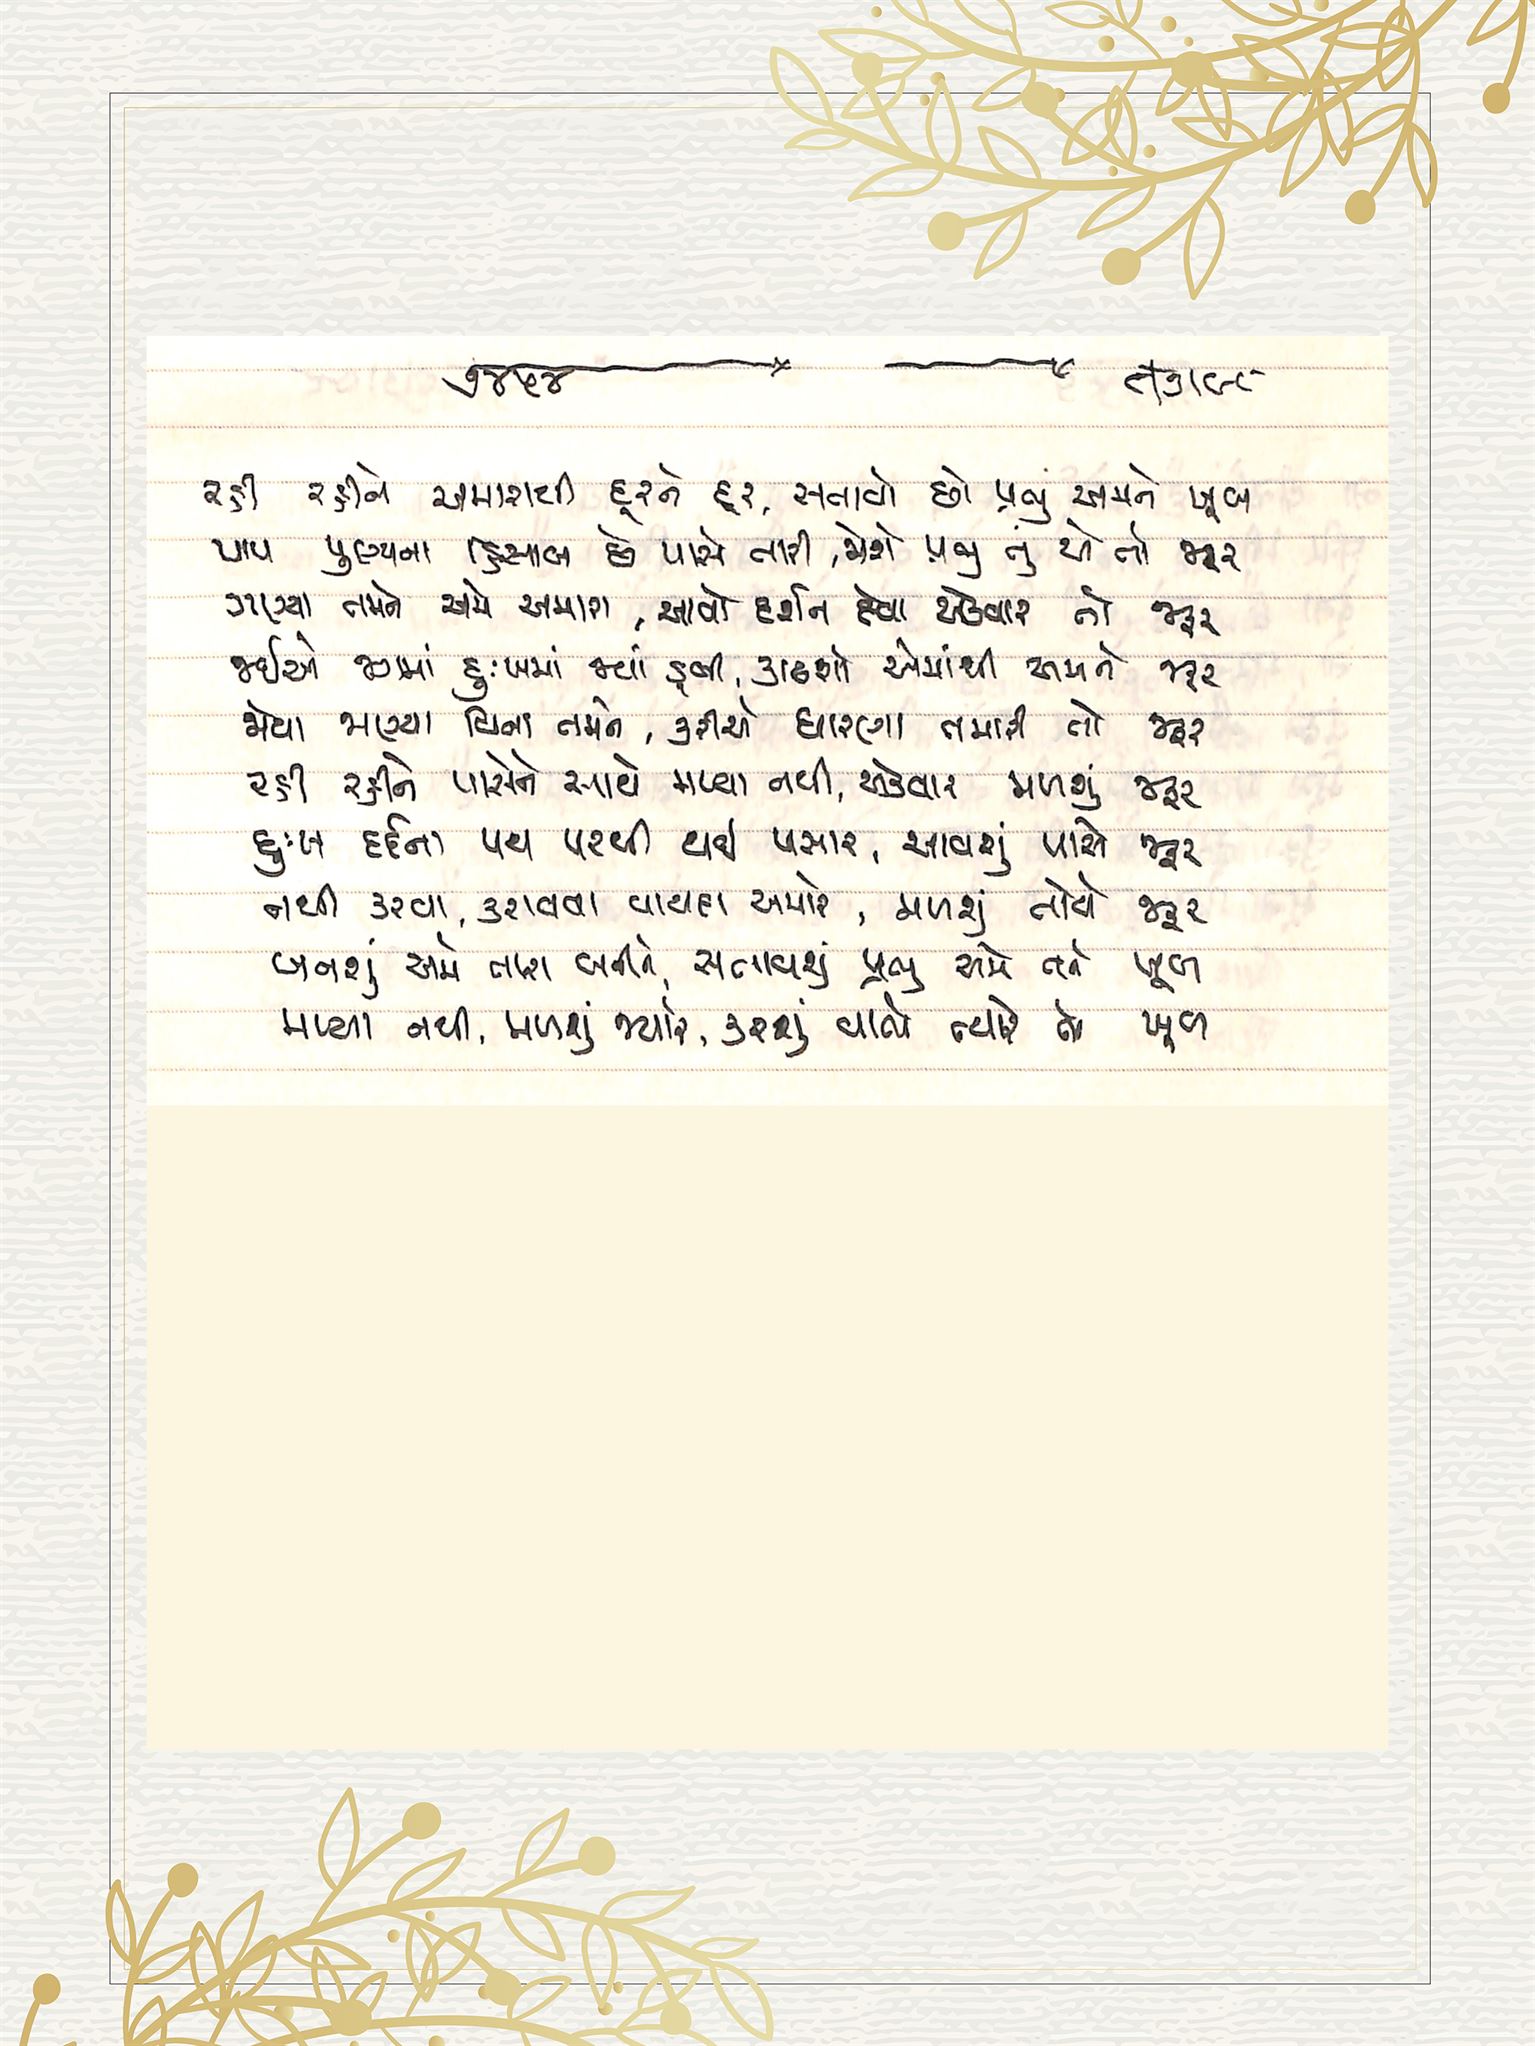 ૭૪૫૪
રહી રહીને અમારાથી દૂરને દૂર, સતાવો છો પ્રભુ અમને ખૂબ
પાપ પુણ્યના હિસાબ છે પાસે તારી, જોશે પ્રભુ તું એ તો જરૂર
ગણ્યા તમને અમે અમારા, આવો દર્શન દેવા એકવાર તો જરૂર
જઈએ જગમાં દુઃખમાં જ્યાં ડૂબી, કાઢશો એમાંથી અમને જરૂર
જોયા જાણ્યા વિના તમને, કરીએ ધારણા તમારી તો જરૂર
રહી રહીને પાસેને સાથે મળ્યા નથી, એકવાર મળશું જરૂર
દુઃખ દર્દના પથ પરથી થઈ પસાર, આવશું પાસે જરૂર
નથી કરવા, કરાવવા વાયદા અમારે, મળશું તોયે જરૂર
બનશું અમે તારા બનીને, સતાવશું પ્રભુ અમે તને ખૂબ
મળ્યા નથી, મળશું જ્યારે, કરશું વાતો ત્યારે તો ખૂબ